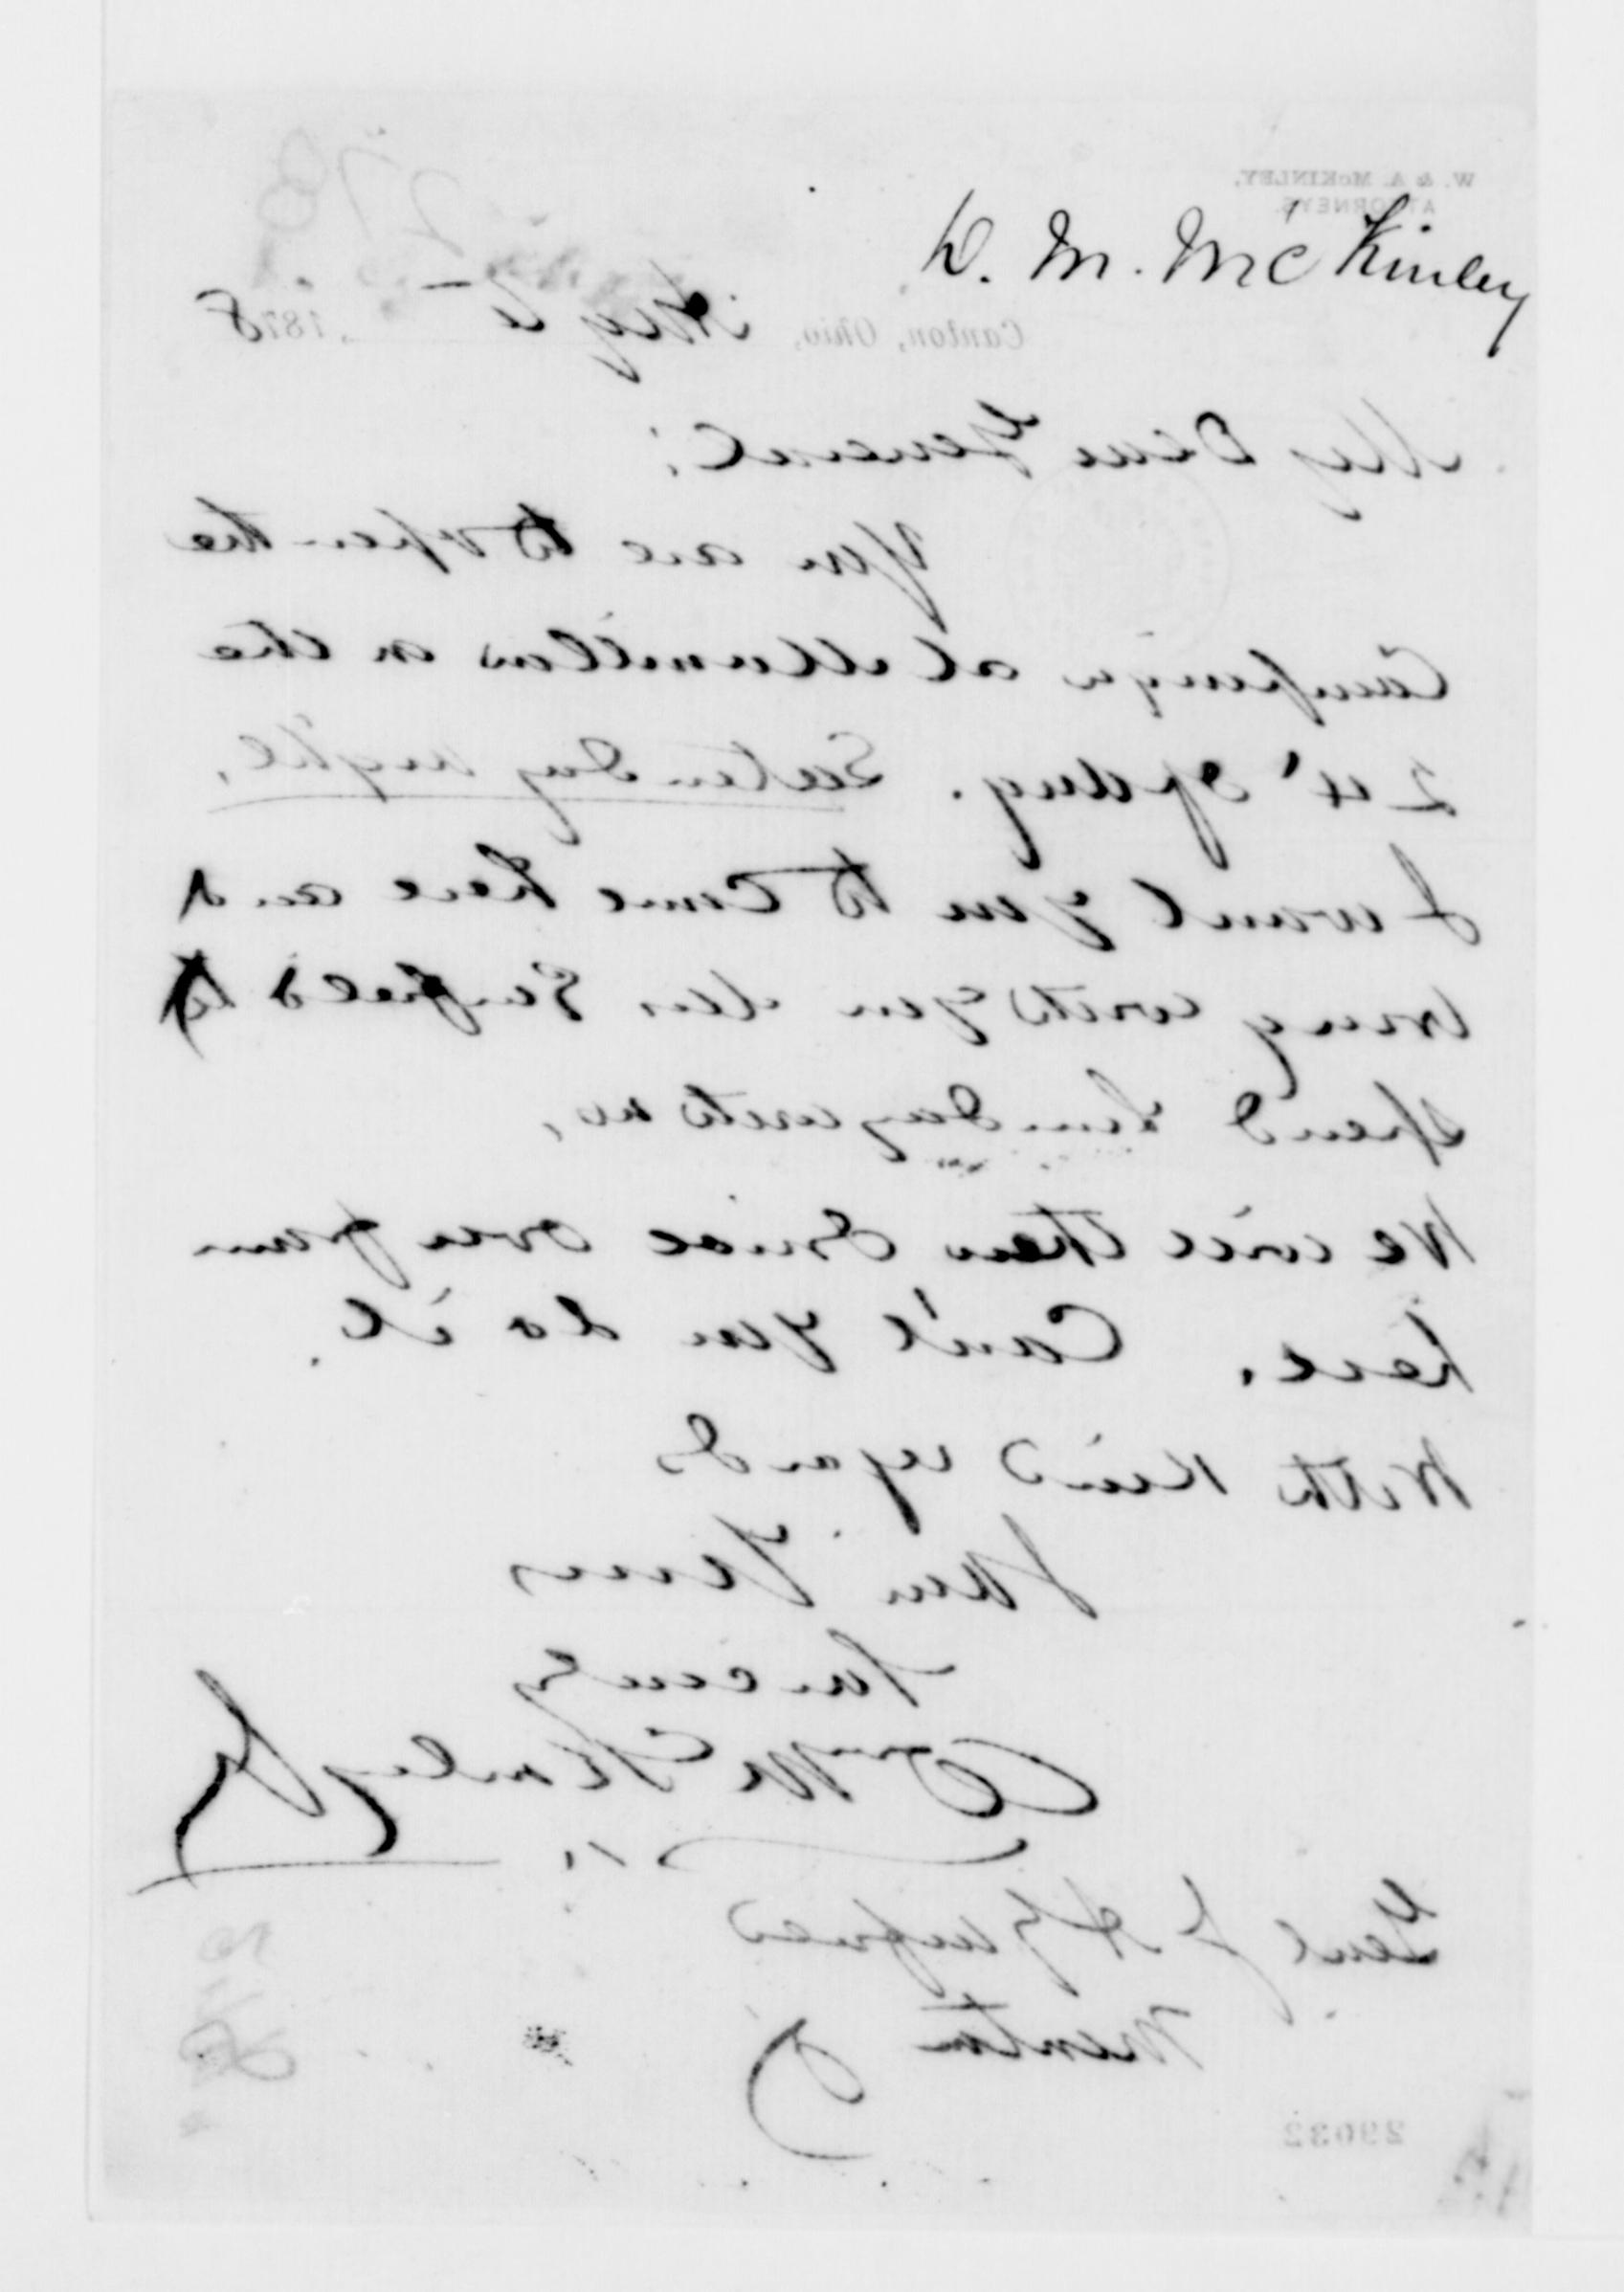 W. & A. McKINLEY,
ATTORNEYS.
W. M. McKinley
Canton, Ohio, Aug 1878
My Dear General:
You are to open the
Campaign at Massillon on the
24' of Aug. Saturday night.
I want you to come here and
bring with you Mrs Garfield &
spend Sunday with us,
We will then drive over from
here. Can't you do it.
With Kind regards
I am Yours
Sincerely
Wm McKinley Jr
Genl J A Garfield
Mentor O
29032